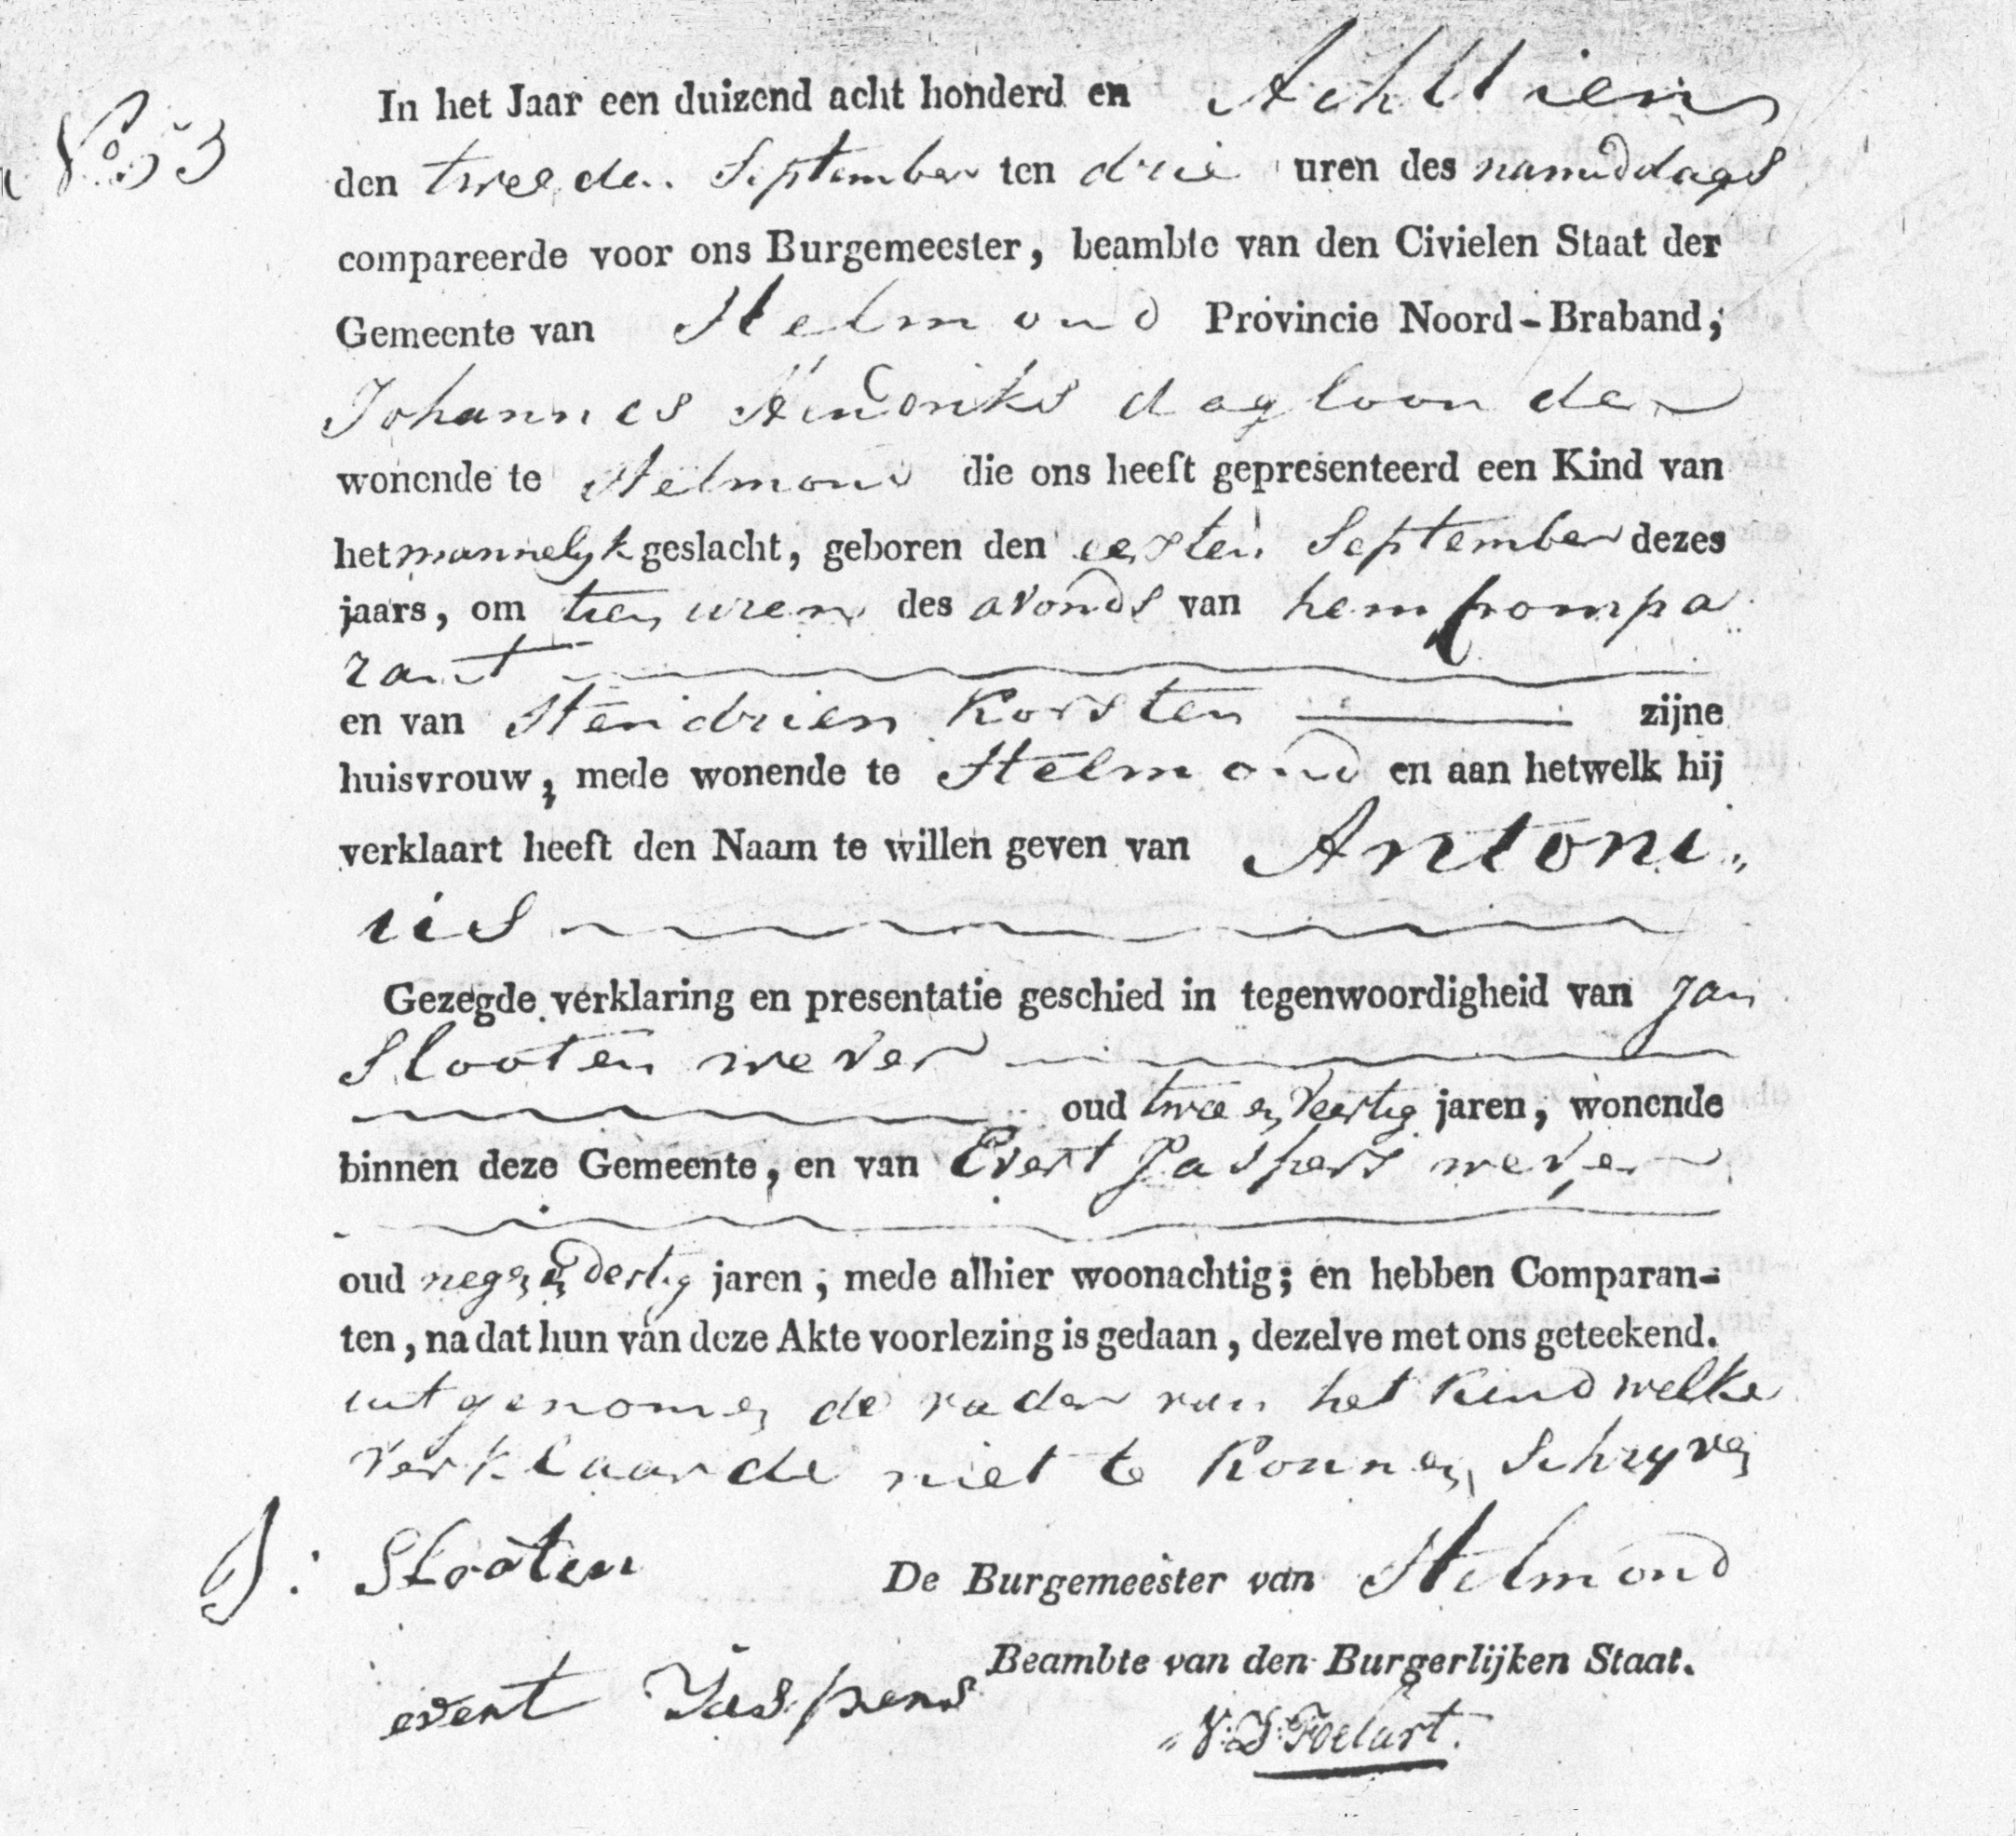 No 53
In het Jaar een duizend acht honderd en Achttien
den tweeden September ten drie uren des namiddags
compareerde voor ons Burgemeester, beambte van den Civielen Staat der
Gemeente van Helmond Provincie Noord-Braband,
Johannes Hendriks dagloonder
wonende te Helmond die ons heeft gepresenteerd een Kind van
het mannelyk geslacht, geboren den eersten September dezes
jaars, om tien uren des avonds van hem Compa
rant
en van Hendrien Korsten zijne
huisvrouw, mede wonende te Helmond en aan hetwelk hij
verklaart heeft den Naam te willen geven van Antoni„
us
Gezegde verklaring en presentatie geschied in tegenwoordigheid van Jan
Slooten wever
oud twee en veertig jaren, wonende
binnen deze Gemeente, en van Evert Jaspers wever
oud negen en dertig jaren, mede alhier woonachtig; en hebben Comparan-
ten, na dat hun van deze Akte voorlezing is gedaan, dezelve met ons geteekend.
uitgenomen de vader van het kind welke
verklaarde niet te konnen schryven
J: Slooten
De Burgemeester van Helmond
Beambte van den Burgerlijken Staat.
evert Jaspers